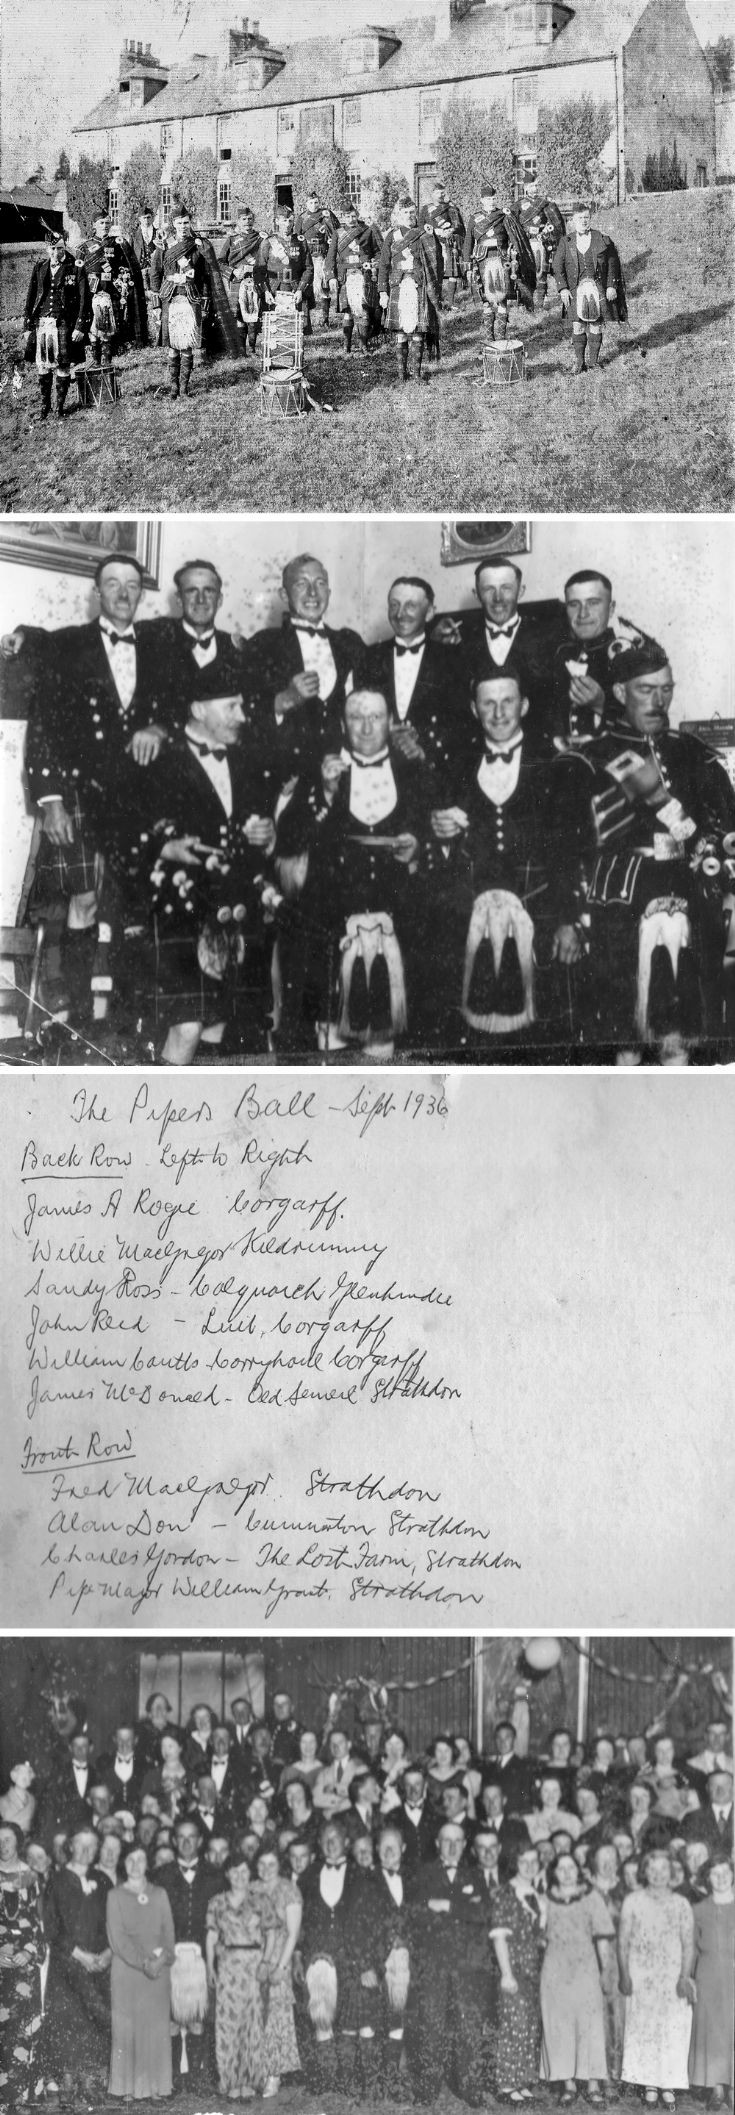 The Pipers Ball - Sept 1936
Back Row Left to Right
James A Rogie Corgarff.
Willie MacGregor Kildrummy
Sandy Ross - Colquoich Glenkindie
John Reid - Luib, Corgarff
William Coutts Corryhoul Corgarff
James McDonald - Old Semeil Strathdon
Front Row
Fred MacGregor. Strathdon
Alan Don - Strathdon
Charles Gordon - The Lost Farm, Strathdon
Pipe Major William Grant. Strathdon